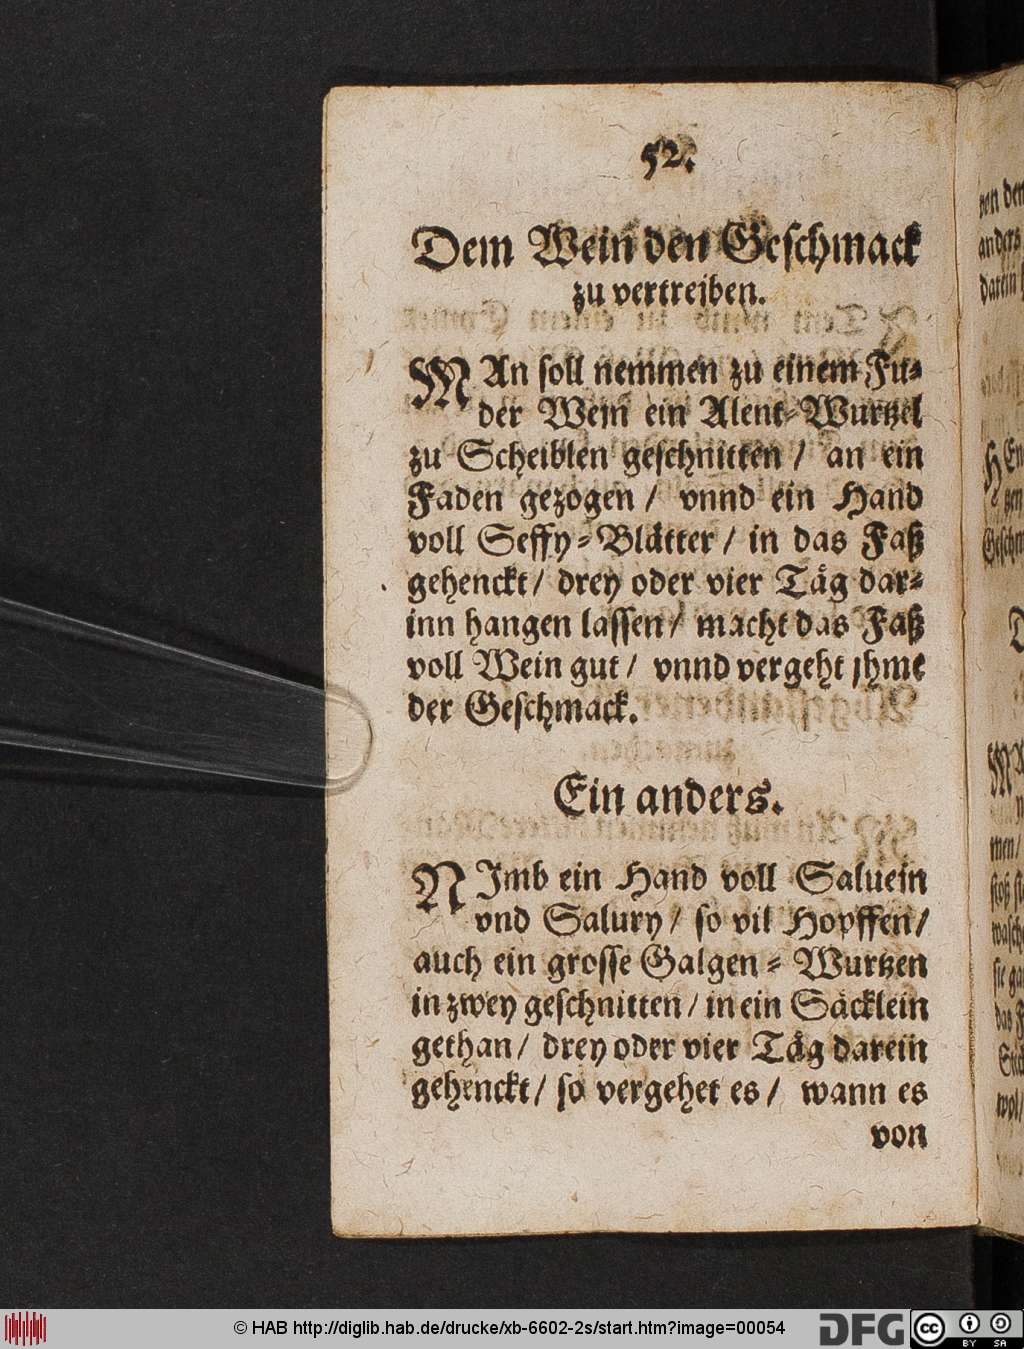 52.
Dem Wein den Geschmack
zu vertreiben.
MAn soll nemmen zu einem Fu-
der Wein ein Alent-Wurtzel
zu Scheiblen geschnitten / an ein
Faden gezogen / vnnd ein Hand
voll Seffy-Blätter / in das Faß
gehenckt / drey oder vier Täg dar-
inn hangen lassen / macht das Faß
voll Wein gut / vnnd vergeht jhme
der Geschmack.
Ein anders.
NJmb ein Hand voll Saluein
vnd Salury / so vil Hopffen /
auch ein grosse Galgen-Wurtzen
in zwey geschnitten / in ein Säcklein
gethan / drey oder vier Täg darein
gehenckt / so vergehet es / wann es
von
© HAB http://diglib.hab.de/drucke/xb-6602-2s/start.htm?image=00054
DFG
cc
BY SA